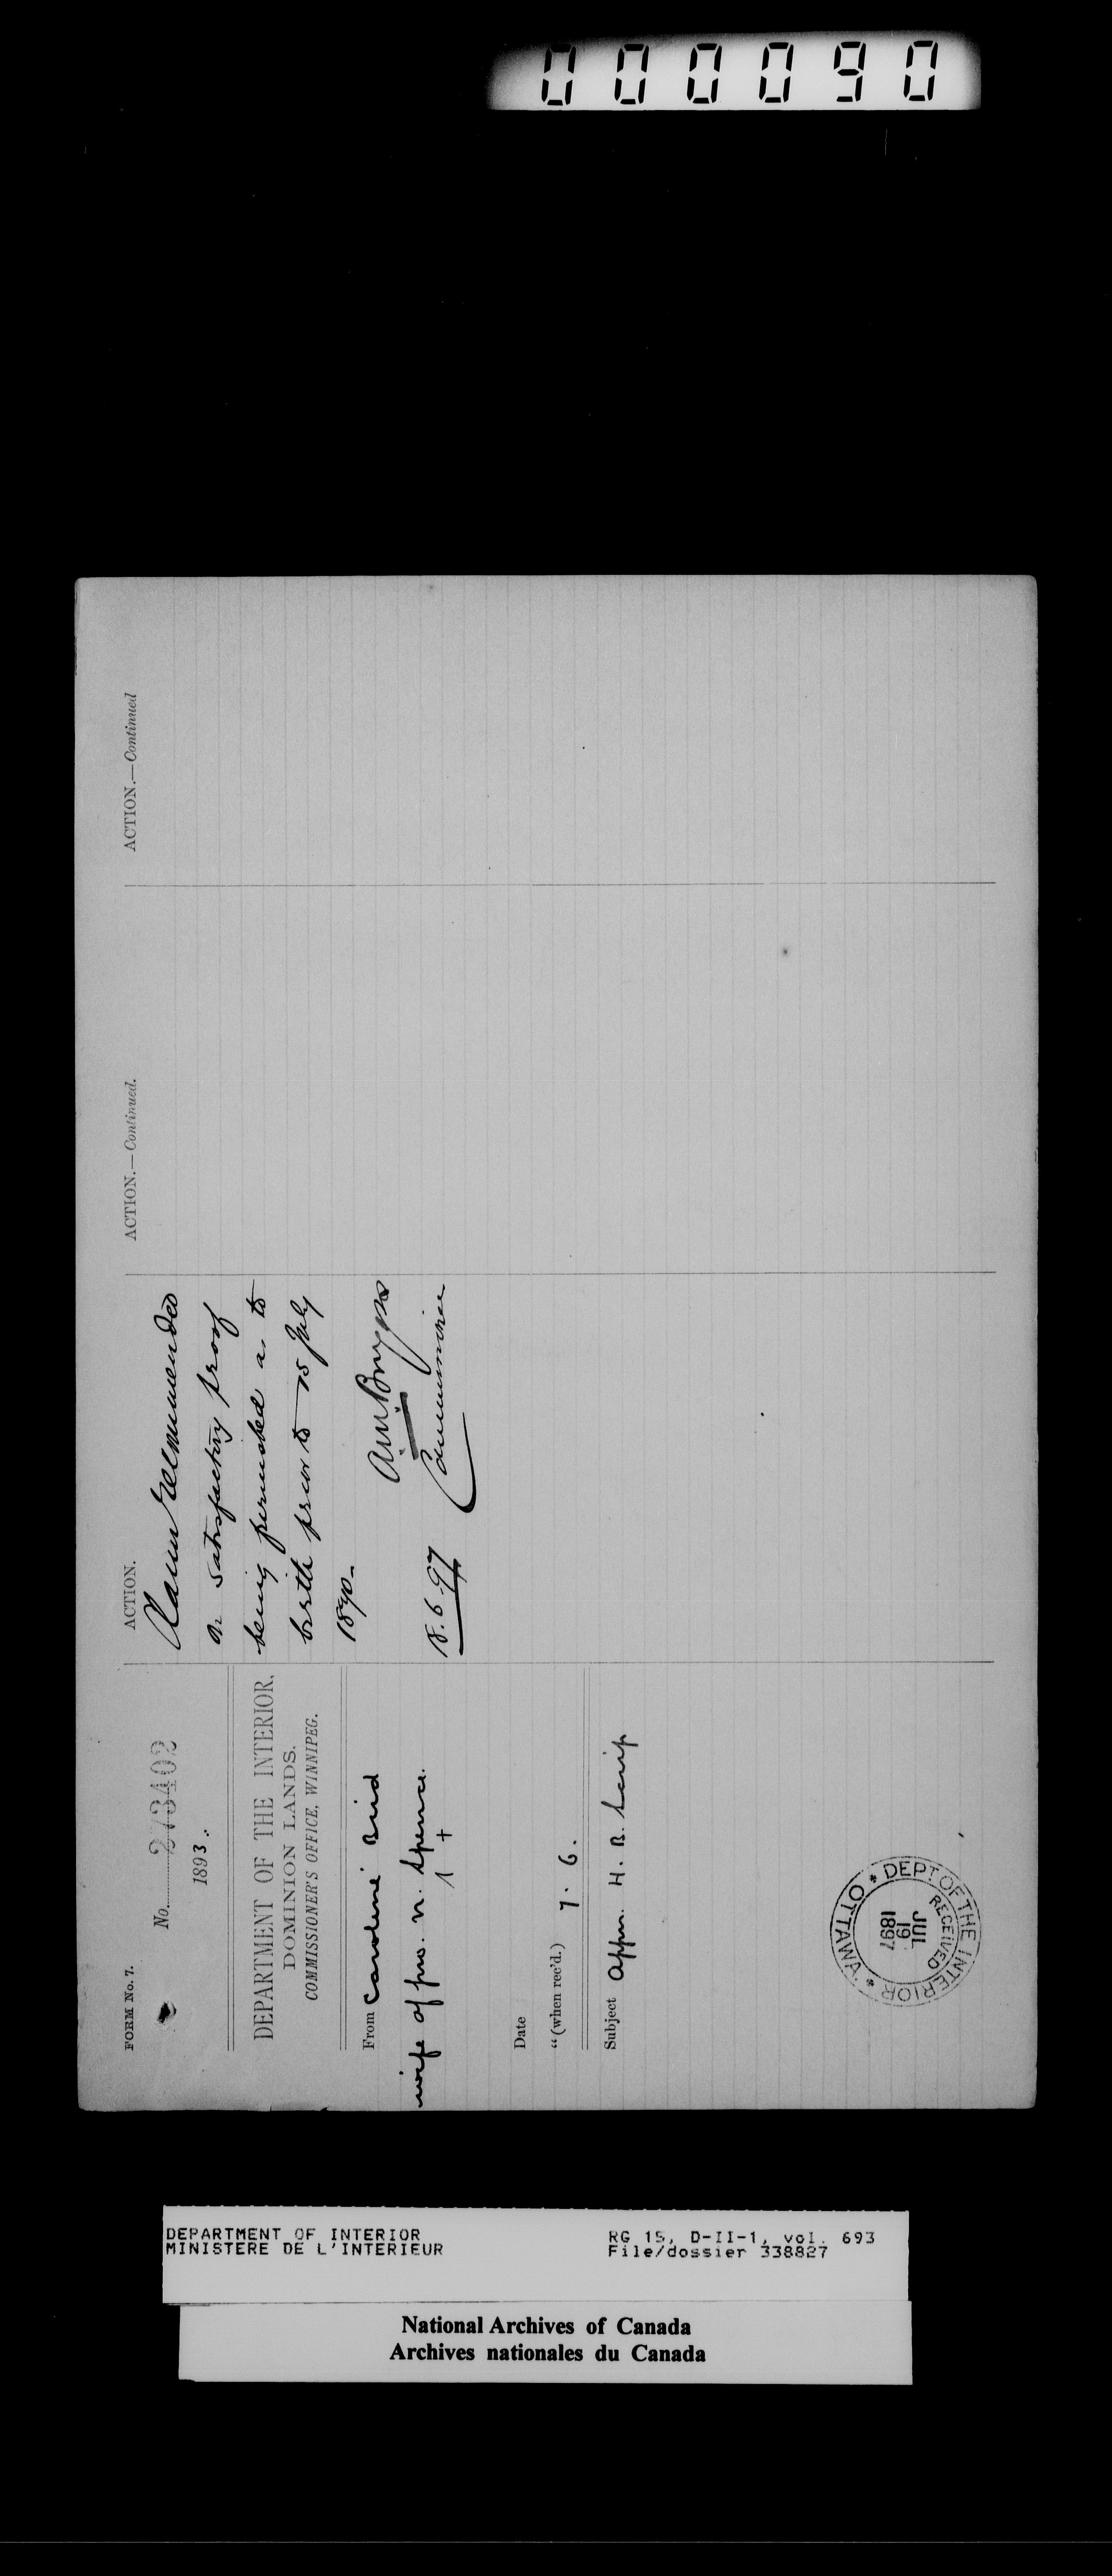 000090
FORM No. 7.
No. 273402
1893.
DEPARTMENT OF THE INTERIOR,
DOMINION LANDS.
COMMISSIONER'S OFFICE, WINNIPEG.
From Caroline Bird
wife of pro. n. Spence.
1 +
Date
" (when rec'd.) 7. 6.
Subject Appn. H. B. Scrip
DEPT OF THE INTERIOR * OTTAWA *
RECEIVED
JUL
19
1897
ACTION.
Claim recommended
on satisfactory proof
being furnished as to
birth prior to 15 July
1870.
Commissioner
18.6.97
ACTION.—Continued.
ACTION.—Continued
DEPARTMENT OF INTERIOR
MINISTERE DE L'INTERIEUR
RG 15, D-II-1, vol. 693
File/dossier 338827
National Archives of Canada
Archives nationales du Canada